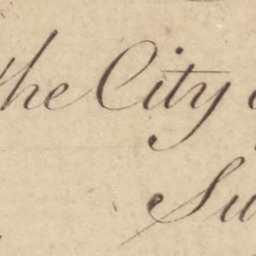 the City
Su